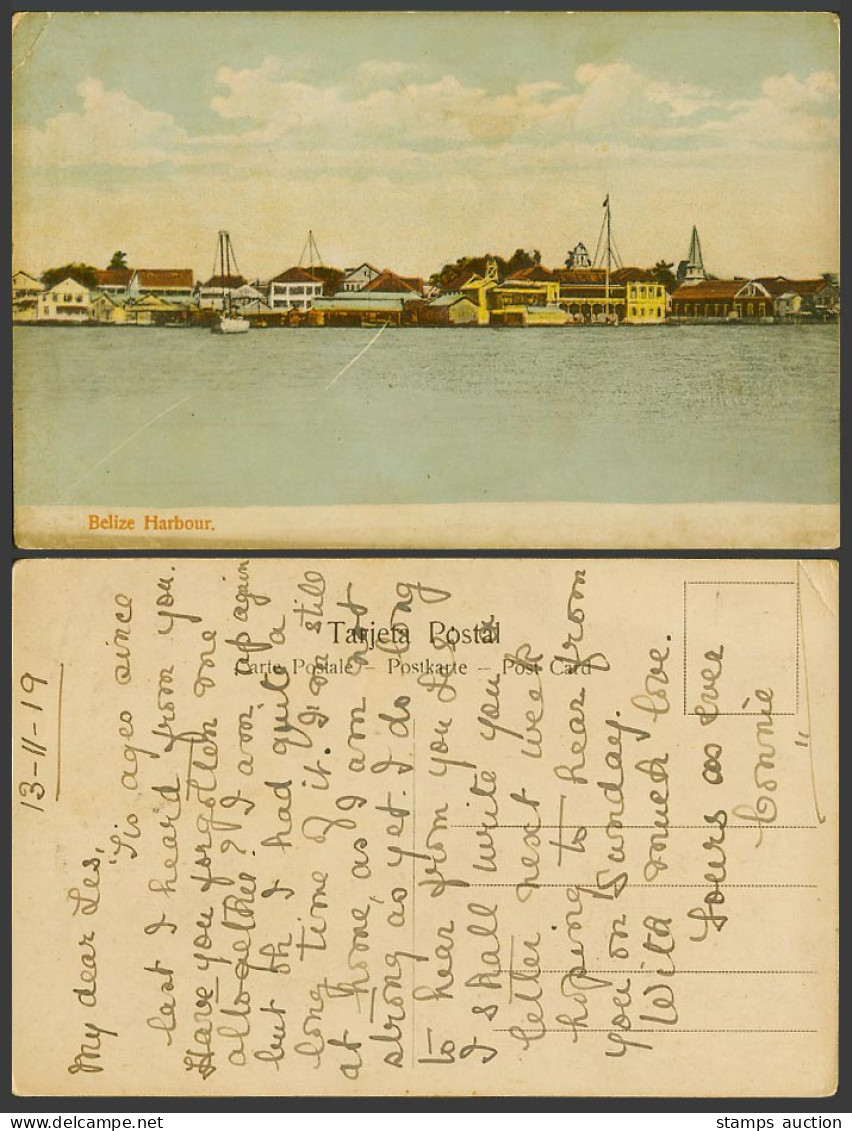 Belize Harbour.
Tarjeta Postal
Carte Postale – Postkarte – Post Card
13-11-19
My dear Les,
'Tis ages since
last I heard from you.
Have you forgotten me
altogether? I am up again
but oh I had quite a
long time of it. I'm still
at home, as I am not
strong as yet. I do long
to hear from you Les.
I shall write you
letter next week
hoping to hear from
you on Sunday.
With much love.
Yours as ever
Connie
stamps auction